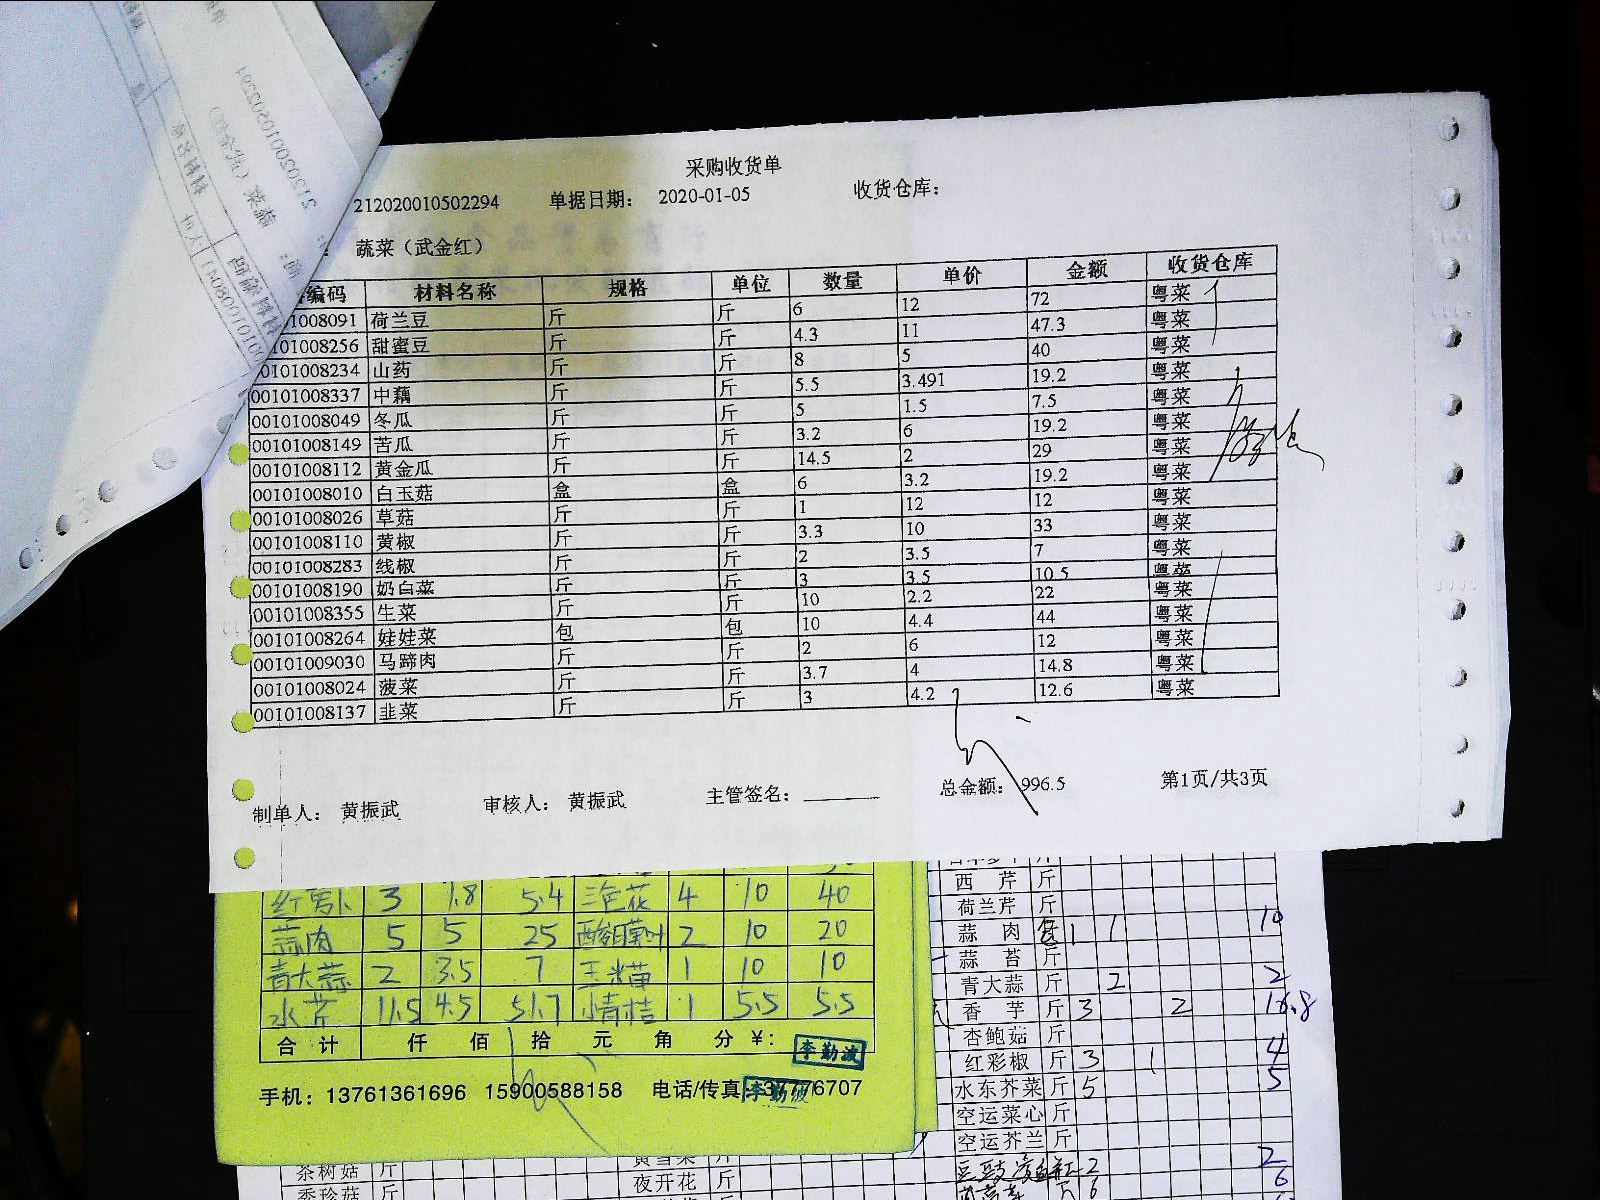 采购收货单
212020010502294 单据日期： 2020-01-05 收货仓库：
蔬菜（武金红）
编码 材料名称 规格 单位 数量 单价 金额 收货仓库
01008091 荷兰豆 斤 斤 6 12 72 粤菜
0101008256 甜蜜豆 斤 斤 4.3 11 47.3 粤菜
00101008234 山药 斤 斤 8 5 40 粤菜
00101008337 中藕 斤 斤 5.5 3.491 19.2 粤菜
00101008049 冬瓜 斤 斤 5 1.5 7.5 粤菜
00101008149 苦瓜 斤 斤 3.2 6 19.2 粤菜
00101008112 黄金瓜 斤 斤 14.5 2 29 粤菜
00101008010 白玉菇 盒 盒 6 3.2 19.2 粤菜
00101008026 草菇 斤 斤 1 12 12 粤菜
00101008110 黄椒 斤 斤 3.3 10 33 粤菜
00101008283 线椒 斤 斤 2 3.5 7 粤菜
00101008190 奶白菜 斤 斤 3 3.5 10.5 粤菜
00101008355 生菜 斤 斤 10 2.2 22 粤菜
00101008264 娃娃菜 包 包 10 4.4 44 粤菜
00101009030 马蹄肉 斤 斤 2 6 12 粤菜
00101008024 菠菜 斤 斤 3.7 4 14.8 粤菜
00101008137 韭菜 斤 斤 3 4.2 12.6 粤菜
制单人： 黄振武 审核人： 黄振武 主管签名： 总金额： 996.5 第1页/共3页
红萝卜 3 1.8 5.4 花 4 10 40
蒜肉 5 5 25 2 10 20
青大蒜 2 3.5 7 1 10 10
水芹 11.5 4.5 51.7 1 5.5 5.5
合计 仟 佰 拾 元 角 分 ¥：
李勤波
手机：13761361696 15900588158 电话/传真：37776707
李勤波
西芹 斤
荷兰芹 斤
蒜肉 1 1 10
蒜苔 斤
青大蒜 斤 2 2
香芋 斤 3 2 16.8
杏鲍菇 斤
红彩椒 斤 3 1 4
水东芥菜 斤 5 5
空运菜心 斤
空运芥兰 斤
2 2
6 6
茶树菇 斤
夜开花 斤